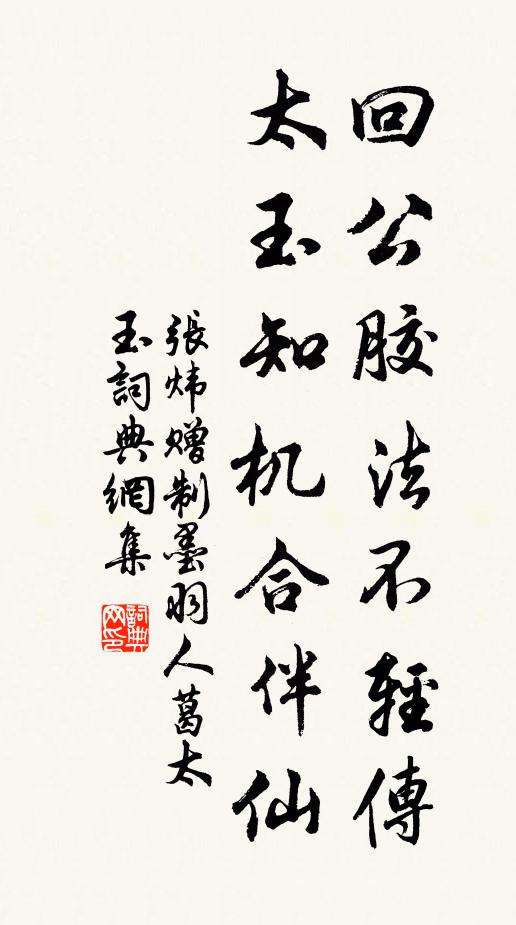 回公胶法不輕傳
太玉知机合伴仙
張炜赠制墨羽人葛太
玉詞典網集
詞典网印